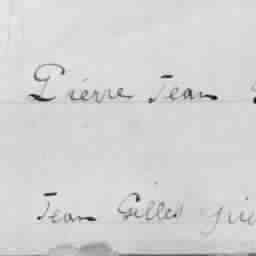 Pierre Jean
Jean Gilles